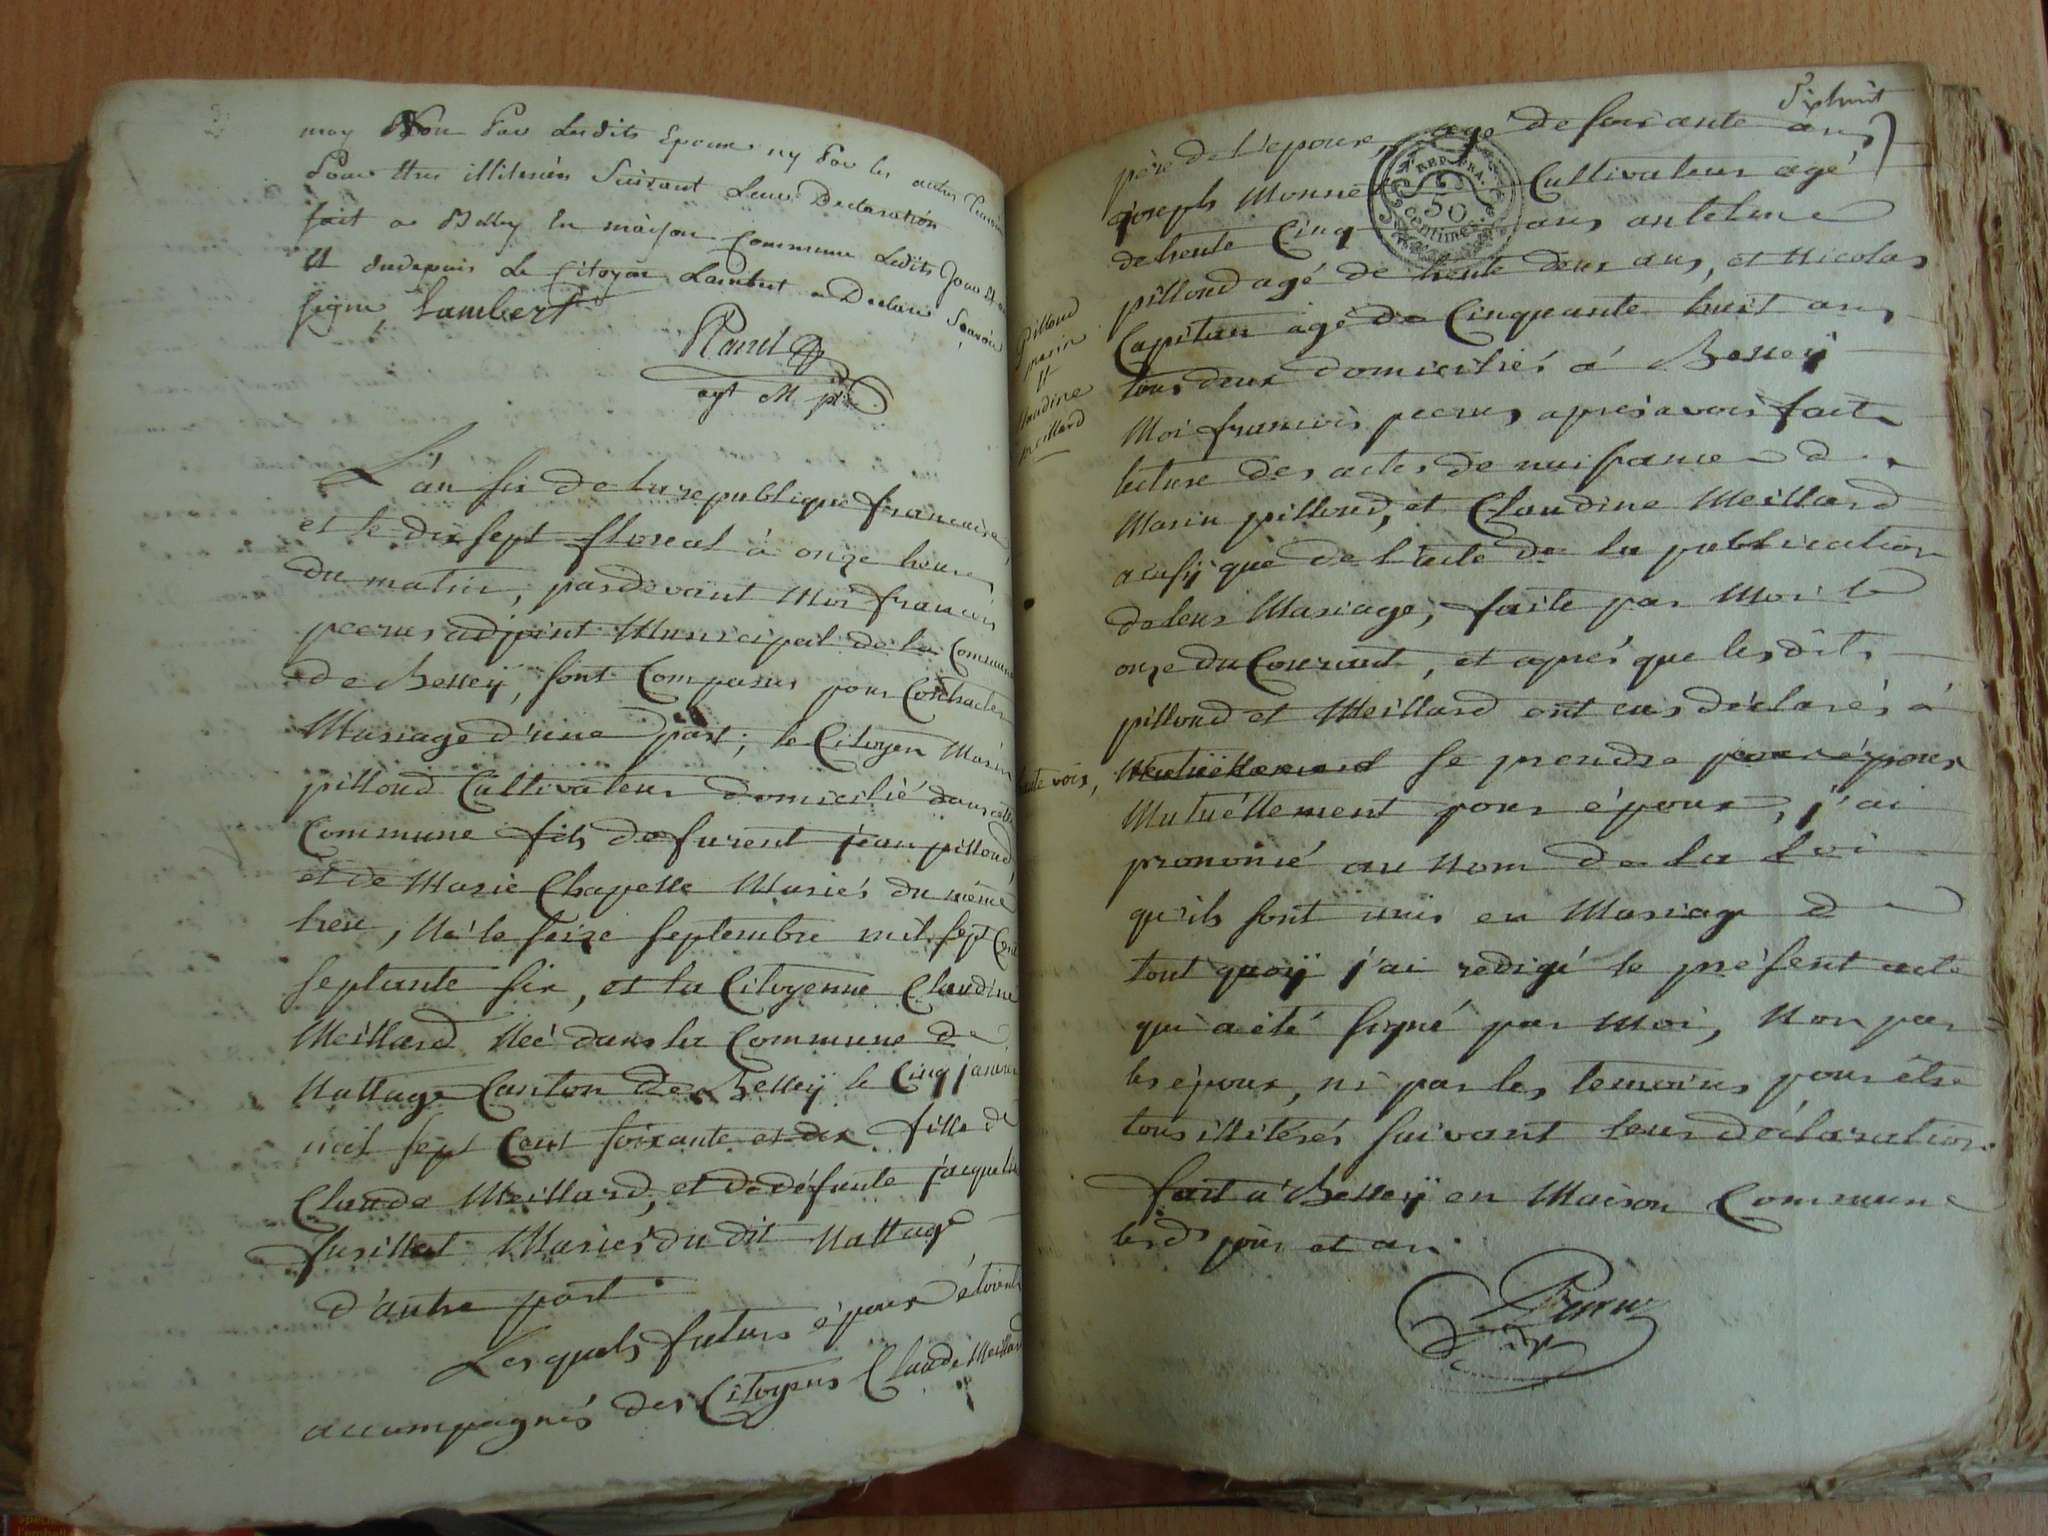 may Non Par Lesdits Epoux ny Par les autres Temoins
Pour Etre illiterés Suivant Leur Declaration
fait a Belley En maison Commune Ledits Jour Et an
Et dudepuis Le Citoyen Lambert a Declaré Sçavoir
signer Lambert
agt M pal
L'an six de la republique francaise,
et le dix sept floreal à onze heures
du matin, pardevant Moi francois
pecrus adjoint Municipal de la Commune
de Belleÿ, sont Comparus pour Contracter
Mariage d'une part; le Citoyen Marin
pilloud Cultivateur domicilié dans cette
Commune fils de furent jean pilloud
et de Marie Chapelle Mariés du même
lieu, Né le seize septembre mil sept Cent
septante six, et la Citoyenne Claudine
Meillard Née dans la Commune de
Nattage Canton de Belleÿ le Cinq janvier
mil sept Cent soixante et dix fille de
Claude Meillard, et de défunte jacqueline
fusillet Mariés du dit Nattage
d'autre part.
Lesquels futurs époux étoient
accompagnés des Citoyens Claude Meillard
Pilloud
marin
Et
Claudine
meillard
Dixhuit
père de l'epouse, agé de soixante ans
joseph Monnet Cultivateur agé
REP. FRA.
50
centimes
de trente Cinq ans antelme
pilloud agé de trente deux ans, et Nicolas
Capitan agé de Cinquante huit ans
tous deux domiciliés à Belleÿ
Moi francois pecrus apres avoir fait
lecture des actes de naissance d
Marin pilloud, et Claudine Meillard
ainsÿ que de l'acte de la publication
de leur Mariage, faite par Moi le
onze du Courant, et aprés que lesdits
pilloud et Meillard ont eus déclarés à
haute voix, Mutuëllement se prendre pour époux
Mutuéllement pour époux, j'ai
prononcé au Nom de la Loi
qu'ils sont unis en Mariage d
tout quoÿ j'ai redigé le présent acte
qui a été signé par Moi, Non par
les époux, ni par les temoins pour être
tous illitérés suivant leur déclaration.
fait à Belleÿ en Maison Commune
lesds jour et an.